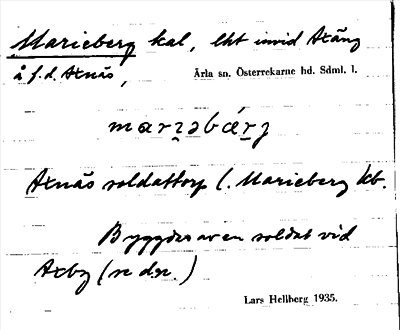 Marieberg kal, lht invid Axäng
å f.d. Axnäs, Ärla sn. Österrekarne hd. Sdml. l.
Axnäs soldattorp l. Marieberg kb.
Bygges av en soldat vid
Axby (se d:o.)
Lars Hellberg 1935.